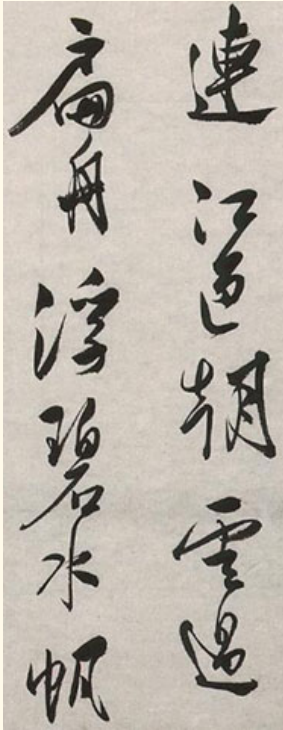 連江邑朝雲過
扁舟浮碧水帆